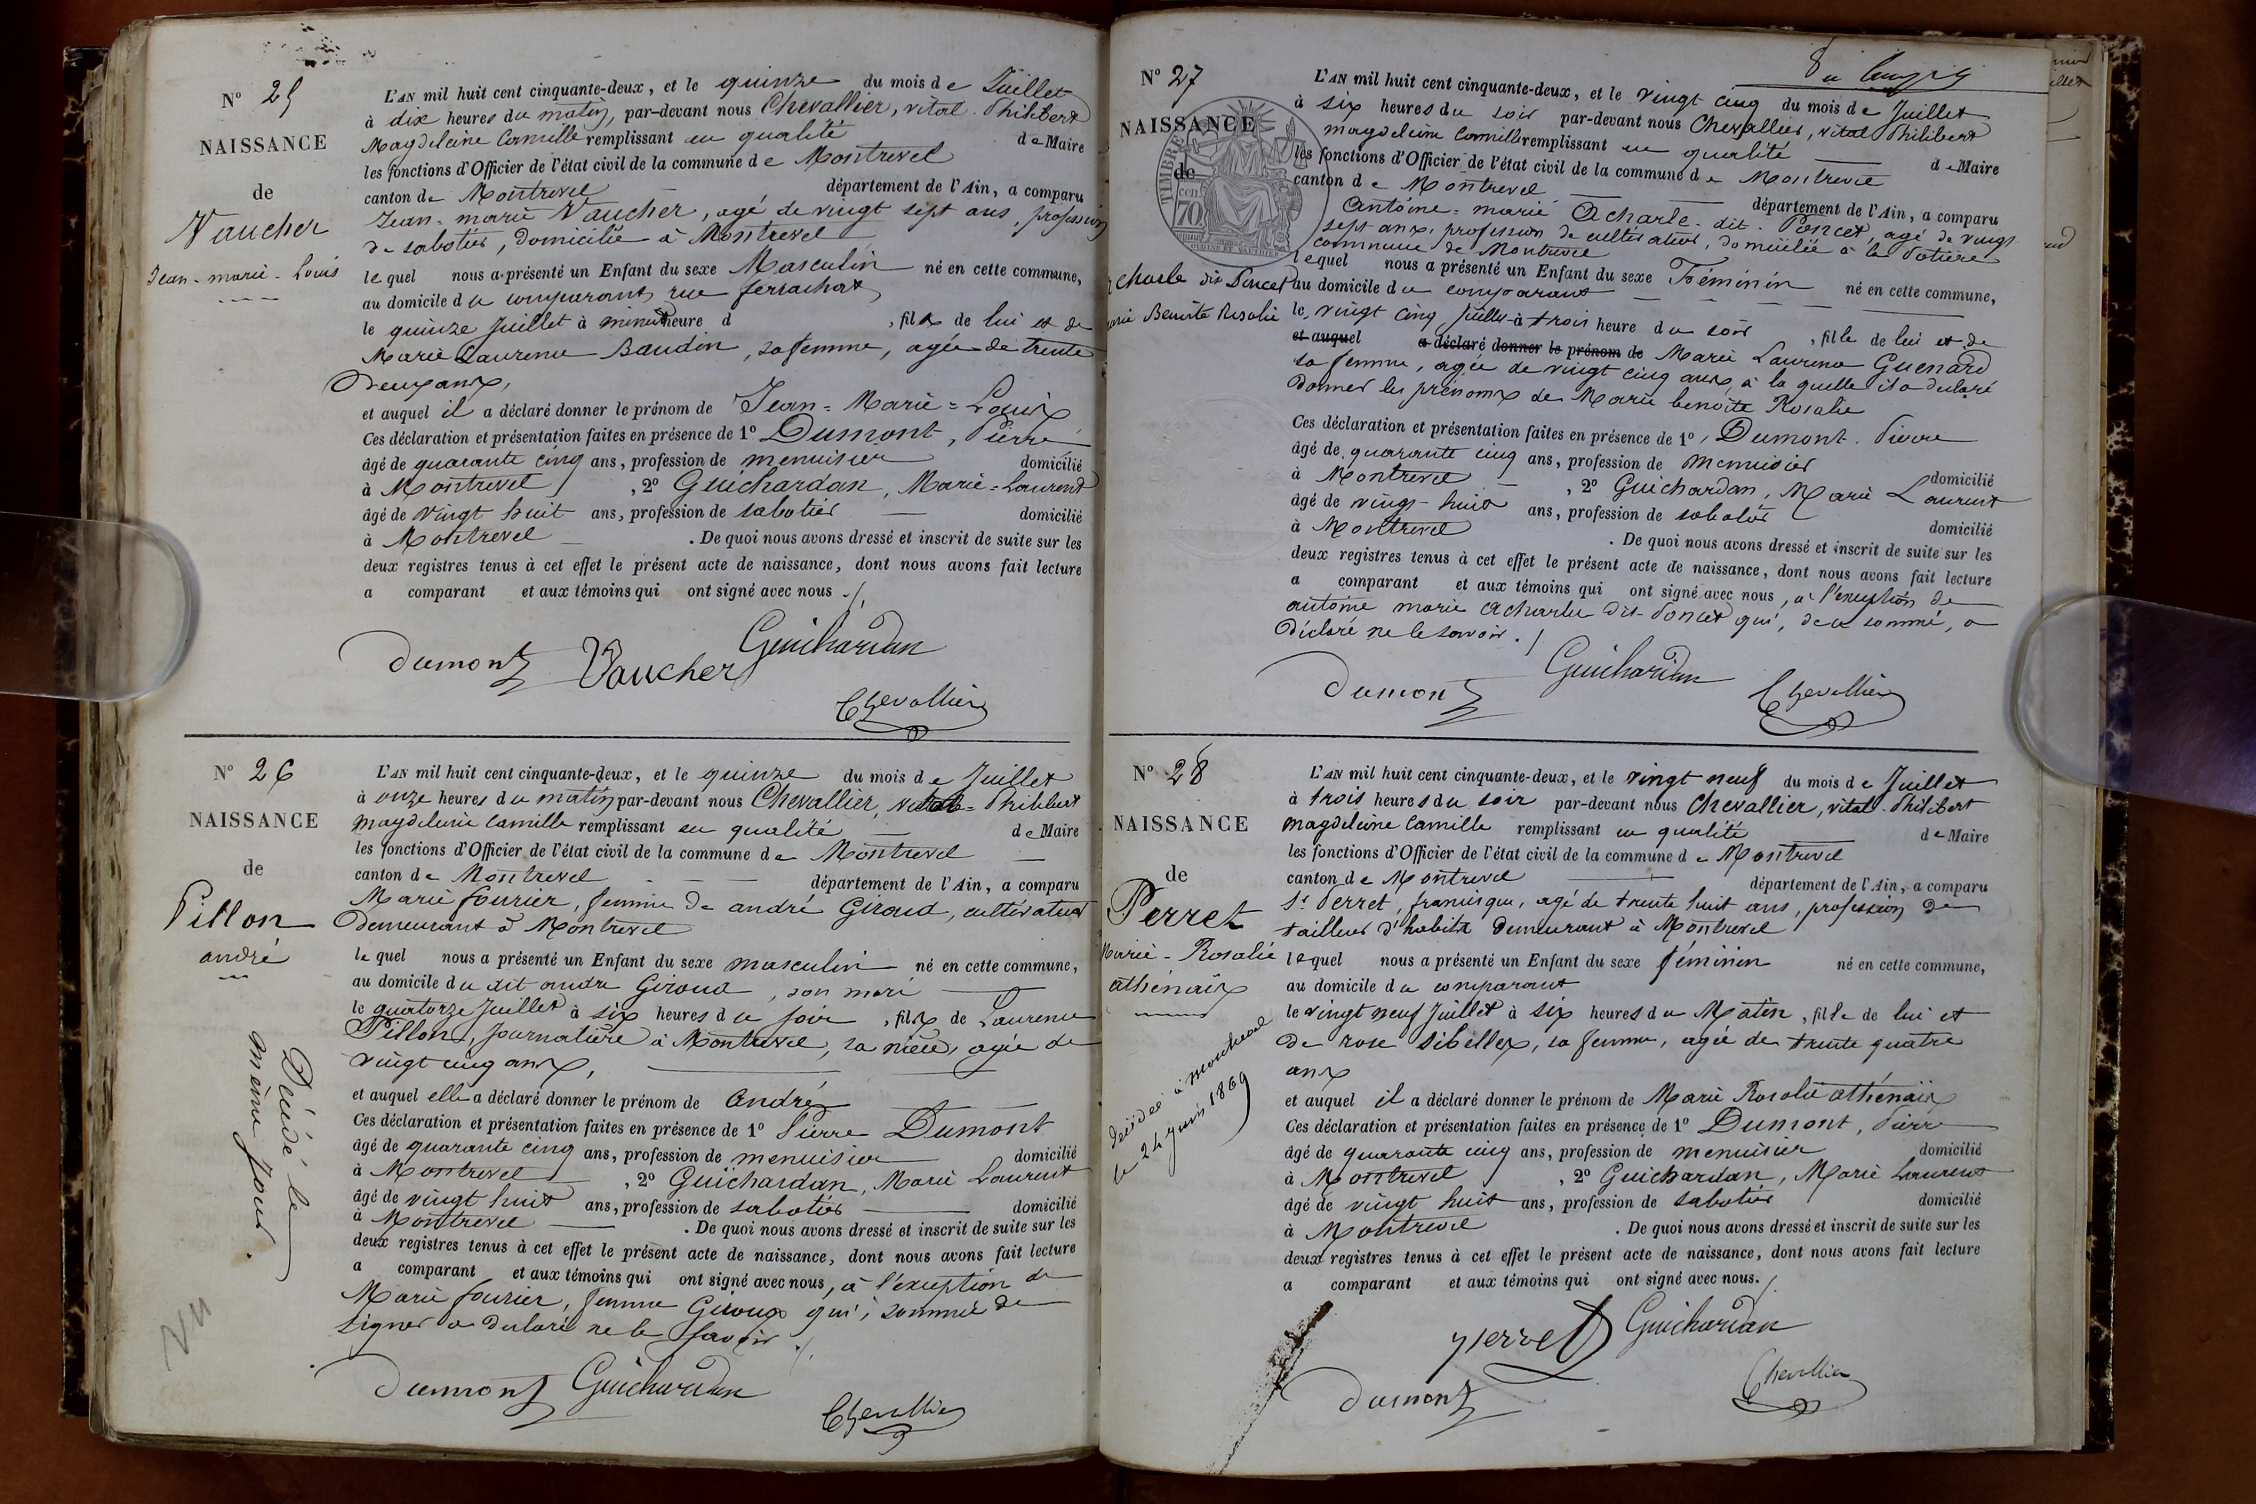 N° 25
NAISSANCE
de
Vaucher
Jean-marie-Louis
L'AN mil huit cent cinquante-deux, et le quinze du mois de Juillet
à dix heures du matin, par-devant nous Chevallier, vital Philibert
Magdeleine Camille remplissant en qualité de Maire
les fonctions d'Officier de l'état civil de la commune de Montrevel
canton de Montrevel département de l'Ain, a comparu
Jean-marie Vaucher, agé de vingt sept ans, profession
de sabotier, domicilié à Montrevel
lequel nous a présenté un Enfant du sexe Masculin né en cette commune,
au domicile du comparant, rue
le quinze Juillet à minuit heure d , fils de lui et de
Marie Laurence Baudin, sa femme, agée de trente
deux ans,
et auquel il a déclaré donner le prénom de Jean=Marie=Louis
Ces déclaration et présentation faites en présence de 1° Dumont, Pierre
âgé de quarante cinq ans, profession de menuisier domicilié
à Montrevel, 2° Guichardan, Marie=Laurent
âgé de vingt huit ans, profession de sabotier domicilié
à Montrevel. De quoi nous avons dressé et inscrit de suite sur les
deux registres tenus à cet effet le présent acte de naissance, dont nous avons fait lecture
a comparant et aux témoins qui ont signé avec nous ./.
Dumont Vaucher Guichardan
Chevallier
N° 26
NAISSANCE
de
Pillon
andré
Décédé le
même jour.
vu
L'AN mil huit cent cinquante-deux, et le quinze du mois de Juillet
à onze heures du matin par-devant nous Chevallier, vital=Philibert
magdeleine Camille remplissant en qualité de Maire
les fonctions d'Officier de l'état civil de la commune de Montrevel
canton de Montrevel département de l'Ain, a comparu
Marie fourier, femme de andré Giroud, cultivateur
Demeurant à Montrevel
lequel nous a présenté un Enfant du sexe masculin né en cette commune,
au domicile du dit andré Giroud, son mari
le quatorze Juillet à six heures du soir, fils de Laurence
Pillon, Journalière à Montrevel, sa nièce, agée de
vingt cinq ans,
et auquel elle a déclaré donner le prénom de andré
Ces déclaration et présentation faites en présence de 1° Pierre Dumont
âgé de quarante cinq ans, profession de menuisier domicilié
à Montrevel, 2° Guichardan, Marie Laurent
âgé de vingt huit ans, profession de sabotier domicilié
à Montrevel. De quoi nous avons dressé et inscrit de suite sur les
deux registres tenus à cet effet le présent acte de naissance, dont nous avons fait lecture
a comparant et aux témoins qui ont signé avec nous, à l'exception de
Marie fourier, femme Giroud qui, sommée de
signer a déclaré ne le savoir ./.
Dumont Guichardan
Chevallier
N° 27
NAISSANCE
de
TIMBRE
70
acharle dit Poncet
marie Benoite Rosalie
L'AN mil huit cent cinquante-deux, et le vingt cinq du mois de Juillet
à six heures du soir par-devant nous Chevallier, vital Philibert
magdeleine Camille remplissant en qualité de Maire
les fonctions d'Officier de l'état civil de la commune de Montrevel
canton de Montrevel département de l'Ain, a comparu
Antoine=marie acharle dit Poncet, agé de vingt
sept ans, profession de cultivateur, domicilié à la Potière
commune de Montrevel
lequel nous a présenté un Enfant du sexe Féminin né en cette commune,
au domicile du comparant
le vingt cinq Juillet à trois heure du soir, fille de lui et de
et auquel a déclaré donner le prénom de Marie Laurence Guenard
sa femme, agée de vingt cinq ans, à la quelle il a déclaré
donner les prénoms de Marie benoite Rosalie
Ces déclaration et présentation faites en présence de 1° Dumont Pierre
âgé de quarante cinq ans, profession de menuisier domicilié
à Montrevel, 2° Guichardan, Marie Laurent
âgé de vingt-huit ans, profession de sabotier domicilié
à Montrevel. De quoi nous avons dressé et inscrit de suite sur les
deux registres tenus à cet effet le présent acte de naissance, dont nous avons fait lecture
a comparant et aux témoins qui ont signé avec nous, à l'exception de
antoine marie acharle dit Poncet qui, de ce sommé, a
déclaré ne le savoir ./
Dumont Guichardan Chevallier
N° 28
NAISSANCE
de
Perret
Marie-Rosalie
athénaïs
décédée à
le 24 juin 1869
L'AN mil huit cent cinquante-deux, et le vingt neuf du mois de Juillet
à trois heures du soir par-devant nous Chevallier, vital Philibert
magdeleine Camille remplissant en qualité de Maire
les fonctions d'Officier de l'état civil de la commune de Montrevel
canton de Montrevel département de l'Ain, a comparu
Sr Perret, françisque, agé de trente huit ans, profession de
tailleur d'habits demeurant à Montrevel
lequel nous a présenté un Enfant du sexe féminin né en cette commune,
au domicile du comparant
le vingt neuf Juillet à six heures du Matin, fille de lui et
de rose Sibellex, sa femme, agée de trente quatre
ans
et auquel il a déclaré donner le prénom de Marie Rosalie athénaïs
Ces déclaration et présentation faites en présence de 1° Dumont, Pierre
âgé de quarante cinq ans, profession de menuisier domicilié
à Montrevel, 2° Guichardan, Marie Laurent
âgé de vingt huit ans, profession de sabotier domicilié
à Montrevel. De quoi nous avons dressé et inscrit de suite sur les
deux registres tenus à cet effet le présent acte de naissance, dont nous avons fait lecture
a comparant et aux témoins qui ont signé avec nous ./.
Perret Guichardan
Dumont Chevallier